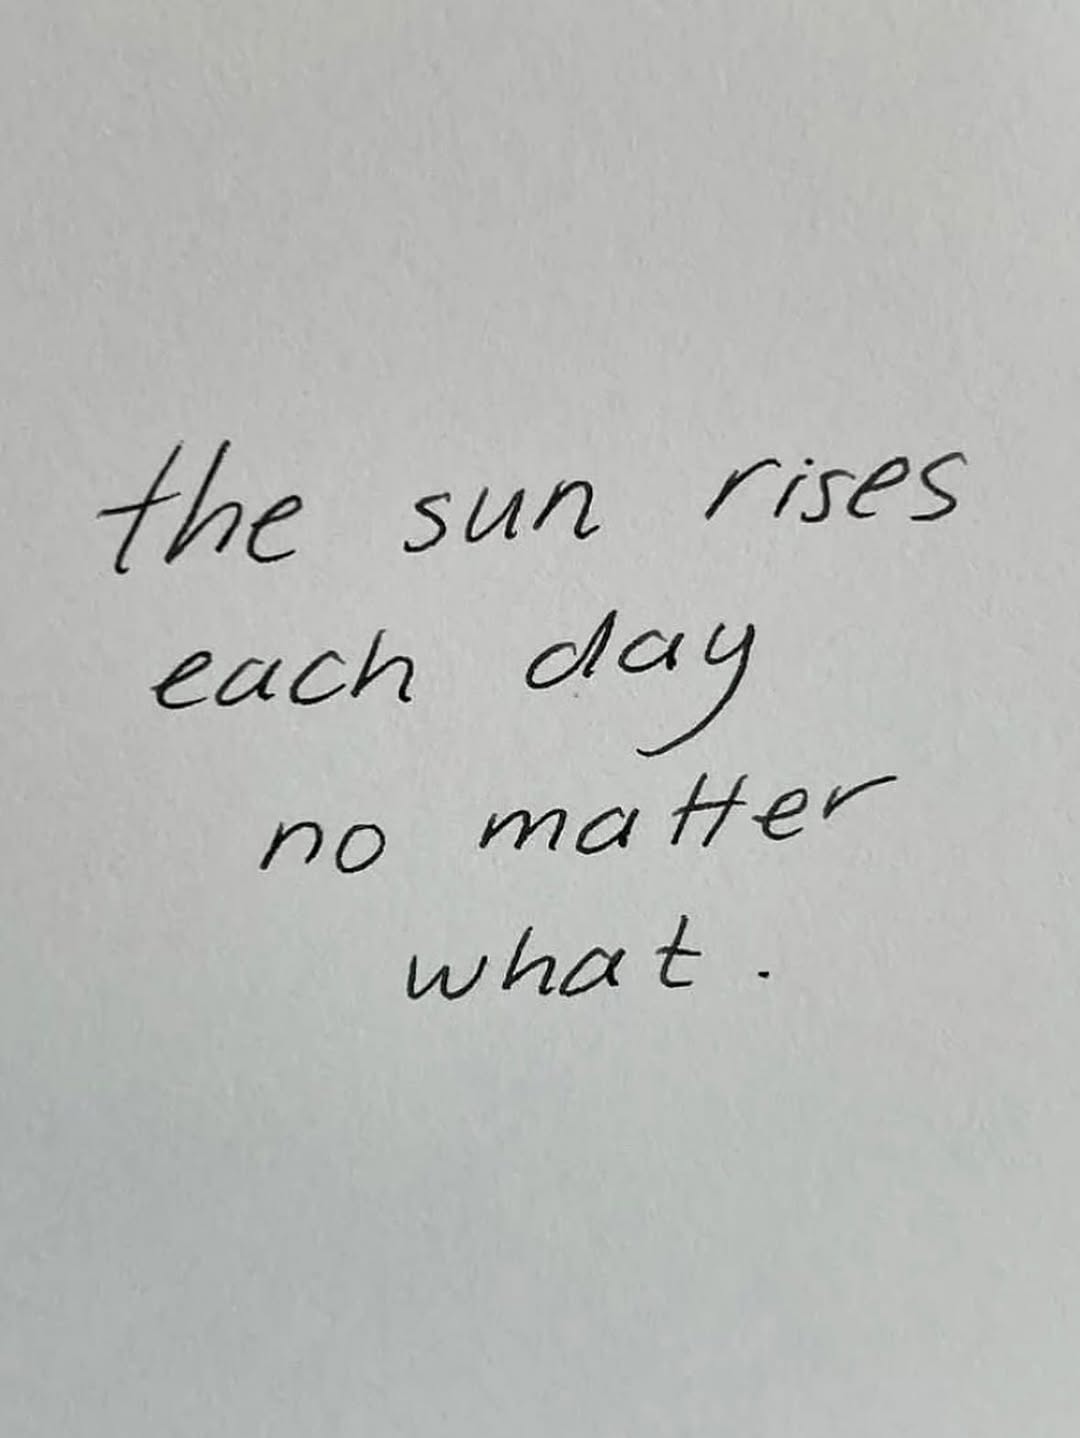 the sun rises
each day
no matter
what.